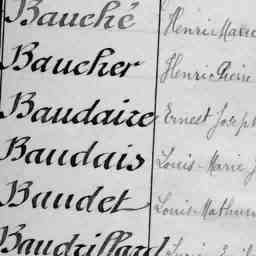 Bauché Henri Marie
Baucher Henri Pierre
Baudaire Ernest Joseph
Baudais Louis-Marie J
Baudet Louis Mathurin
Baudrillard